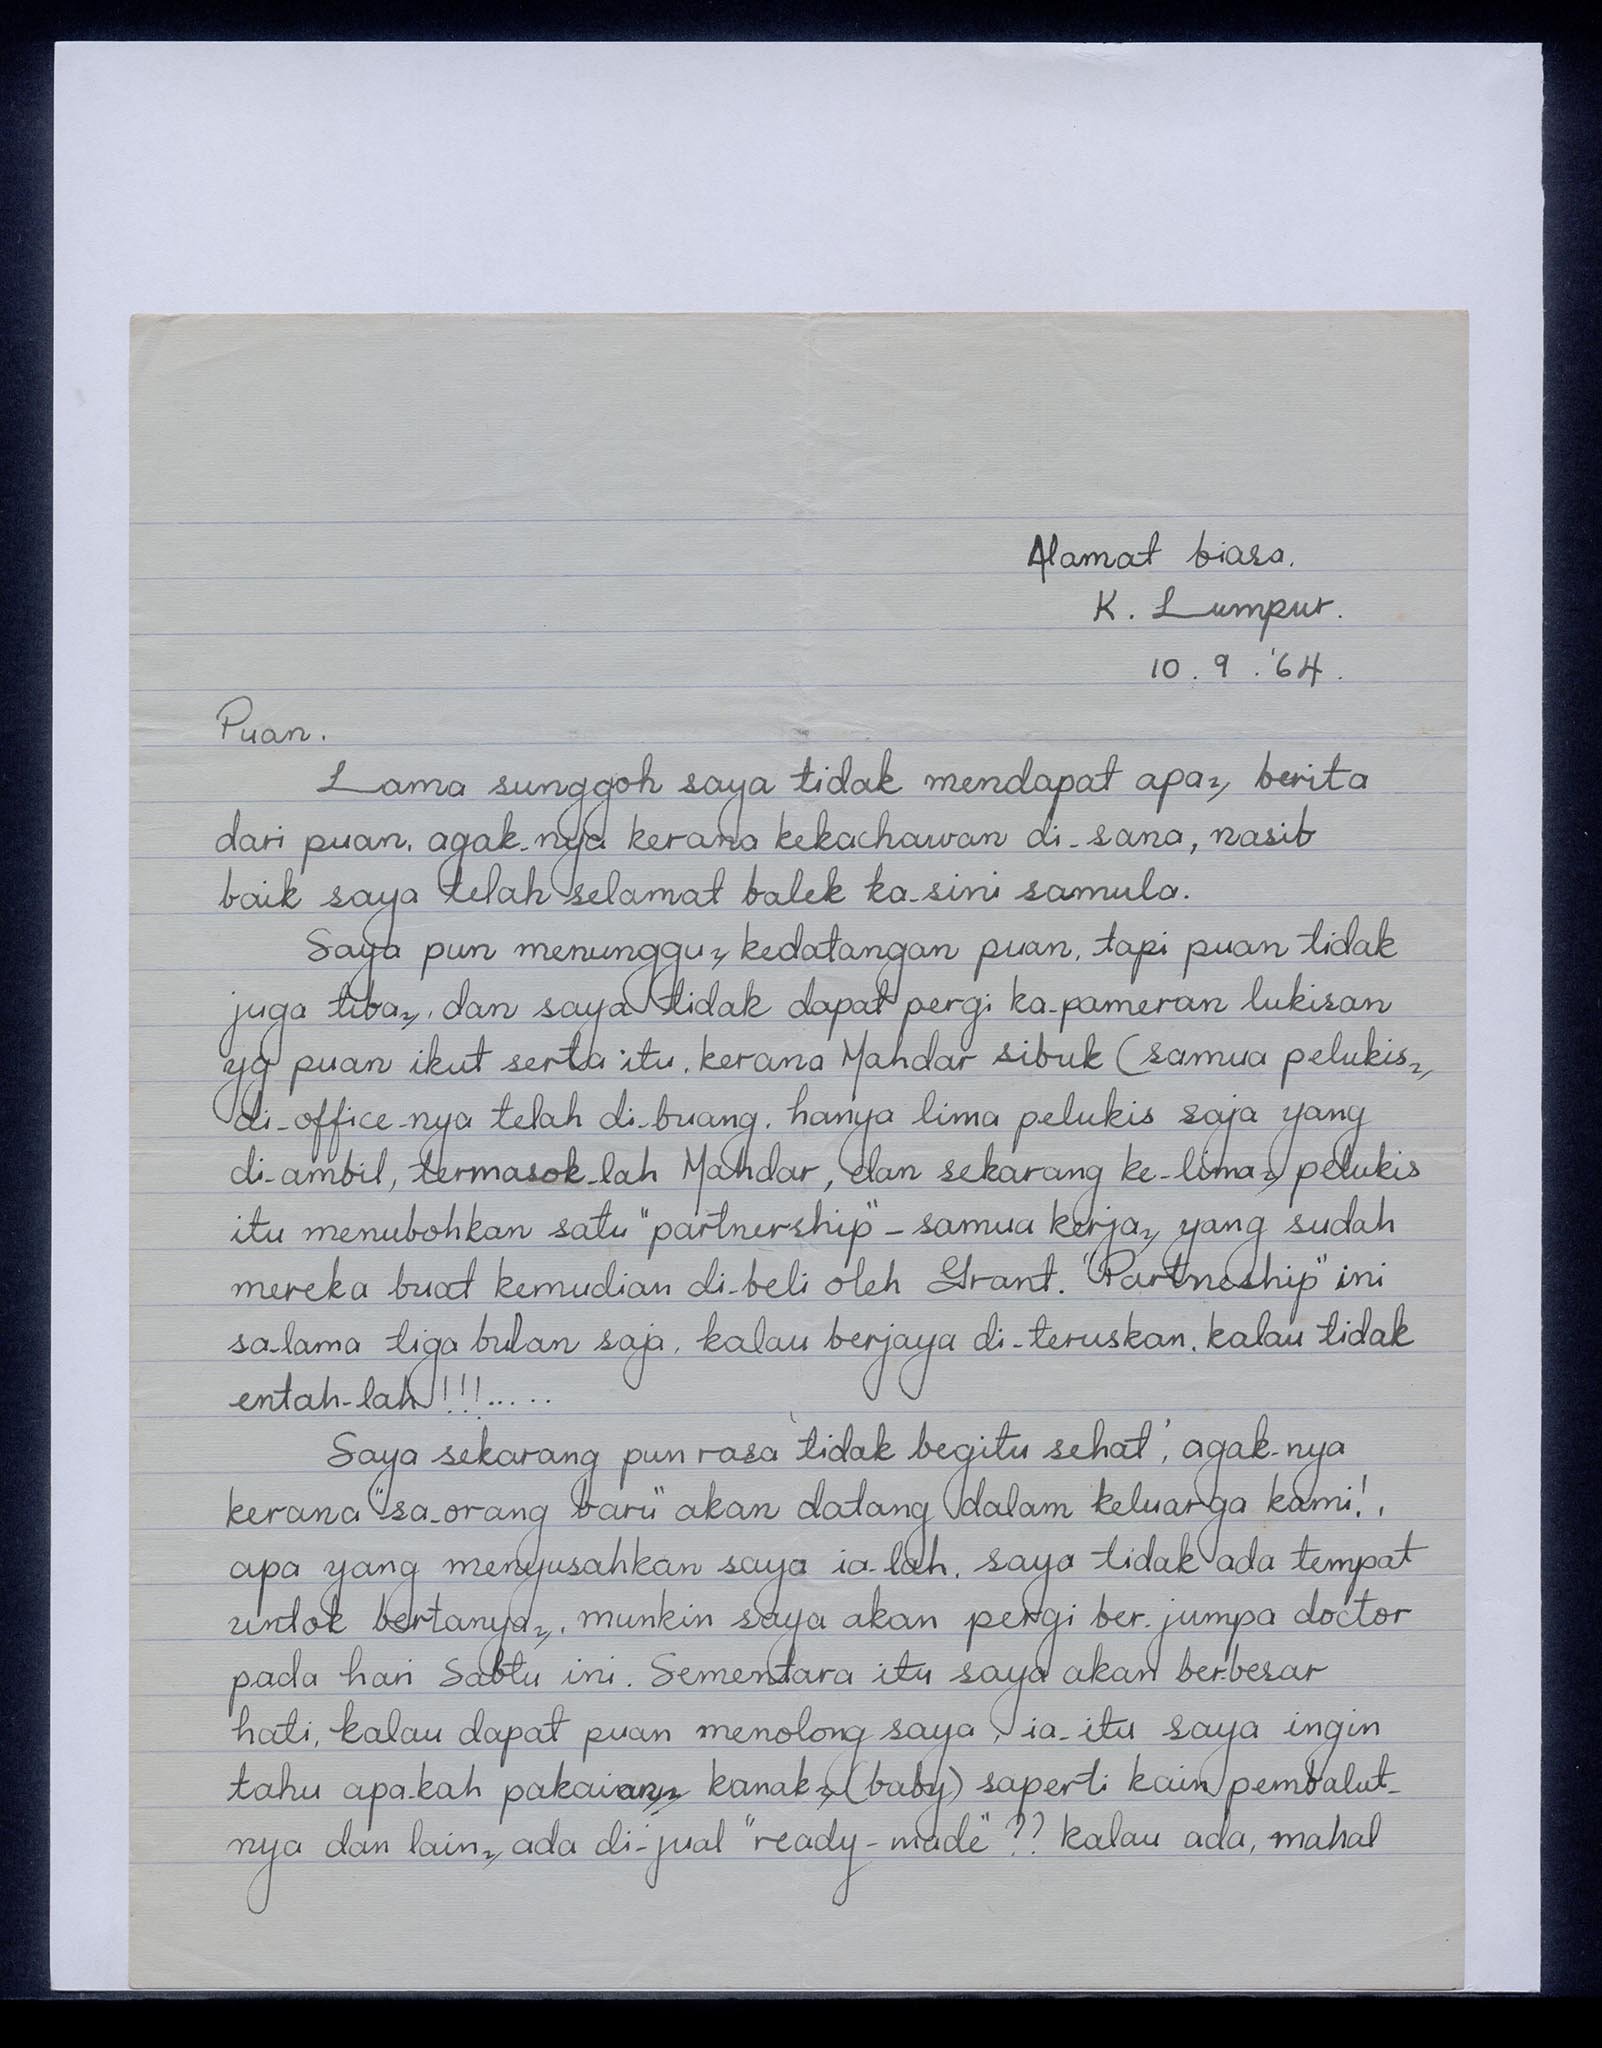 Alamat biasa.
K. Lumpur.
10. 9. '64.
Puan.
Lama sunggoh saya tidak mendapat apa2, berita
dari puan, agak-nya kerana kekachawan di-sana, nasib
baik saya telah selamat balek ka-sini samula.
Saya pun menunggu2, kedatangan puan, tapi puan tidak
juga tiba2, dan saya tidak dapat pergi ka-pameran lukisan
yg puan ikut serta itu, kerana Mahdar sibuk (samua pelukis2,
di-office-nya telah di-buang, hanya lima pelukis saja yang
di-ambil, termasok-lah Mahdar, dan sekarang ke-lima2, pelukis
itu menubohkan satu "partnership" - samua kerja2, yang sudah
mereka buat kemudian di-beli oleh Grant. "Partneship" ini
sa-lama tiga bulan saja, kalau berjaya di-teruskan, kalau tidak
entah-lah!!!.....
Saya sekarang pun rasa 'tidak begitu sehat', agak-nya
kerana "sa-orang baru" akan datang dalam keluarga kami!,
apa yang menyusahkan saya ia-lah, saya tidak ada tempat
untok bertanya2, munkin saya akan pergi ber-jumpa doctor
pada hari Sabtu ini. Sementara itu saya akan berbesar
hati, kalau dapat puan menolong saya, ia-itu saya ingin
tahu apa-kah pakaian2, kanak2, (baby) saperti kain pembalut-
nya dan lain2, ada di-jual "ready-made"?? kalau ada, mahal